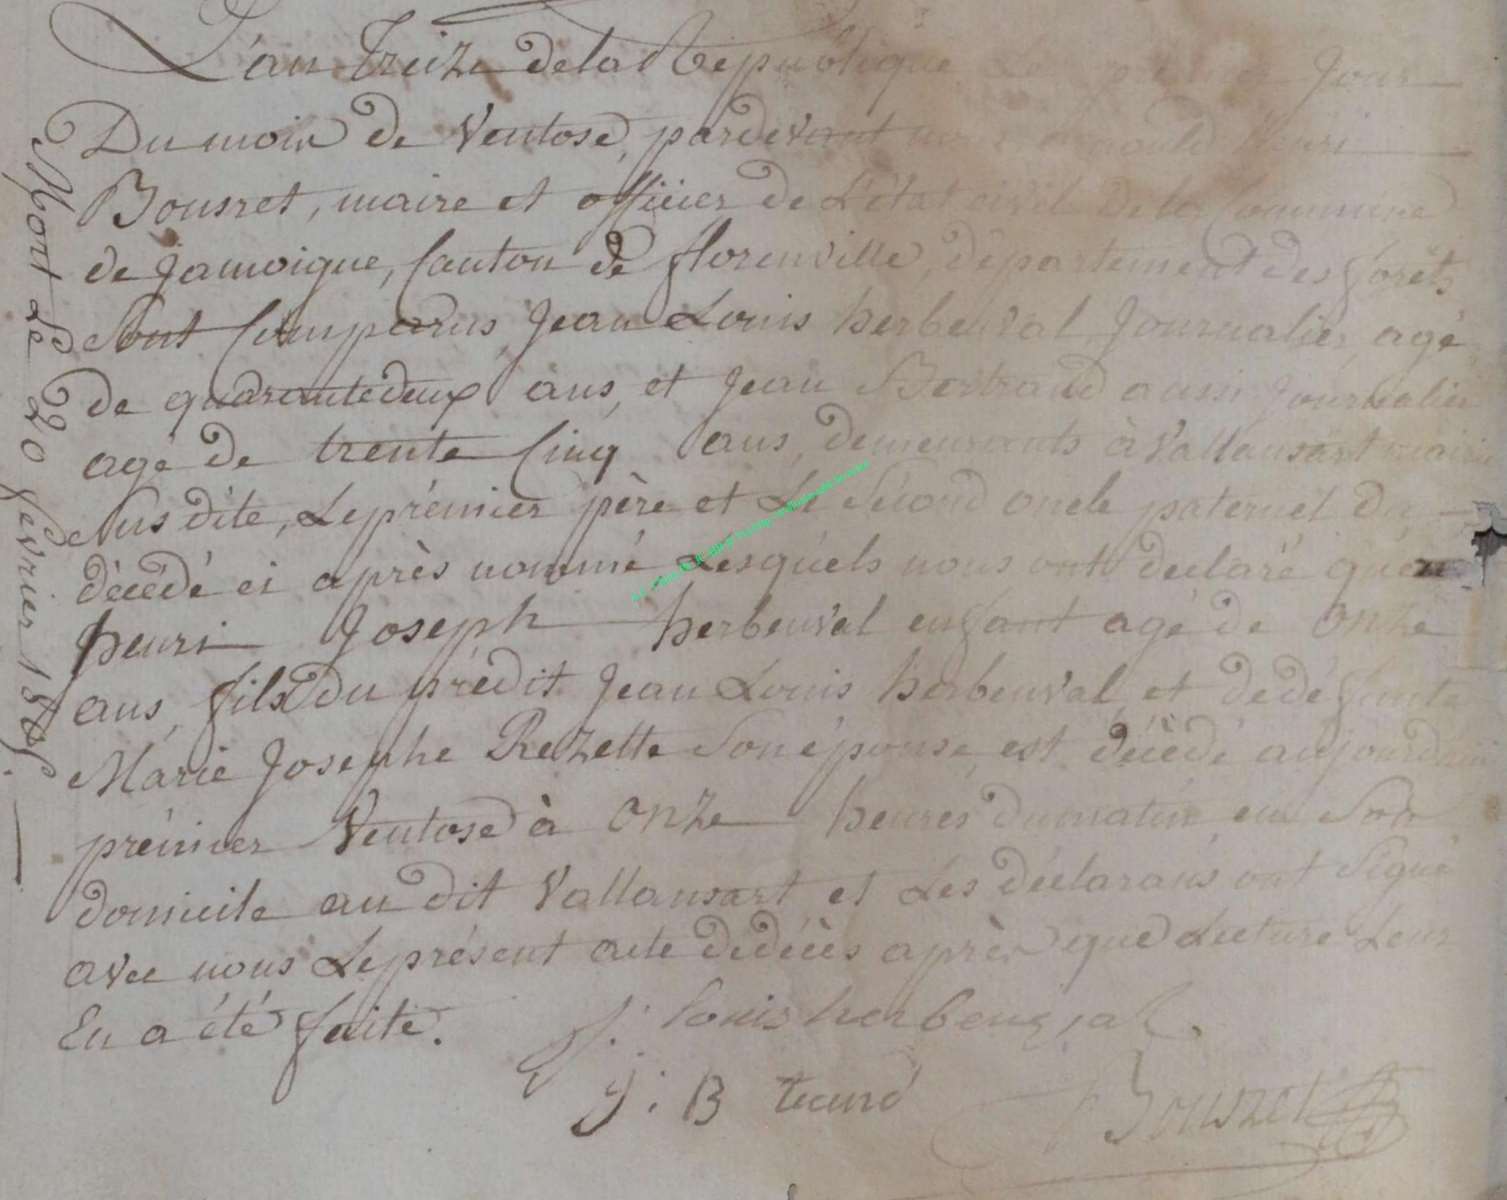 L'an treize de la République Le premier Jour
Du mois de Ventose, pardevant nous Henri
Bousret, maire et officier de L'état civil de la Commune
de Jamoigne, Canton de florenville, département des forêts
Sont Comparus Jean Louis herbeuval Journalier, agé
de quarantedeux ans, et Jean Bertrand aussi Journalier
agé de trente Cinq ans, demeurants à Vallansart mairie
Susdite, Le prémier père et Le Sécond oncle paternel du
décédé ci après nommé Lesquels nous ont déclaré que
henri Joseph herbeuval enfant agé de onze
ans, fils du prédit Jean Louis herbeuval et de défunte
Marie Josephe Rezette Son épouse, est décédé aujourdhui
prémier Ventose à onze heures du matin, en Son
domicile au dit Vallansart et Les déclarans ont Signé
avec nous Le présent acte de décès après que Lecture Leur
En a été faite.
J: Louis herbeuval
J: B trand
Bousret
Mort Le 20 fevrier 1805.